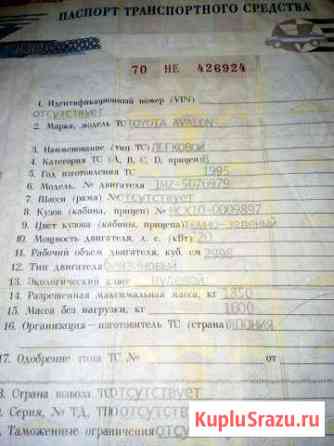 ПАСПОРТ ТРАНСПОРТНОГО СРЕДСТВА
70 НЕ 426924
1. Идентификационный номер (VIN)
отсутствует
2. Марка, модель ТС TOYOTA AVALON
3. Наименование (тип ТС) ЛЕГКОВОЙ
4. Категория ТС (A, B, C, D, прицеп) B
5. Год изготовления ТС 1995
6. Модель, № двигателя 1MZ-5070979
7. Шасси (рама) № отсутствует
8. Кузов (кабина, прицеп) № MCX10-0009897
9. Цвет кузова (кабины, прицепа) темно-зеленый
10. Мощность двигателя, л. с. (кВт)
11. Рабочий объем двигателя, куб. см
12. Тип двигателя бензиновый
13. Экологический класс нулевой
14. Разрешенная максимальная масса, кг 1850
15. Масса без нагрузки, кг 1600
16. Организация-изготовитель ТС (страна) ЯПОНИЯ
17. Одобрение типа ТС № от
Страна вывоза ТС отсутствует
Серия, № ТД, ТПО отсутствует
Таможенные ограничения отсу
KupluSrazu.ru
KupluSrazu.ru